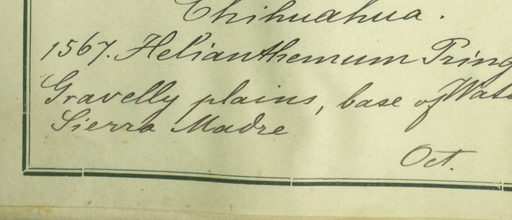 Chihuahua.
1567. Helianthemum Pring
Gravelly plains, base of Wat
Sierra Madre
Oct.